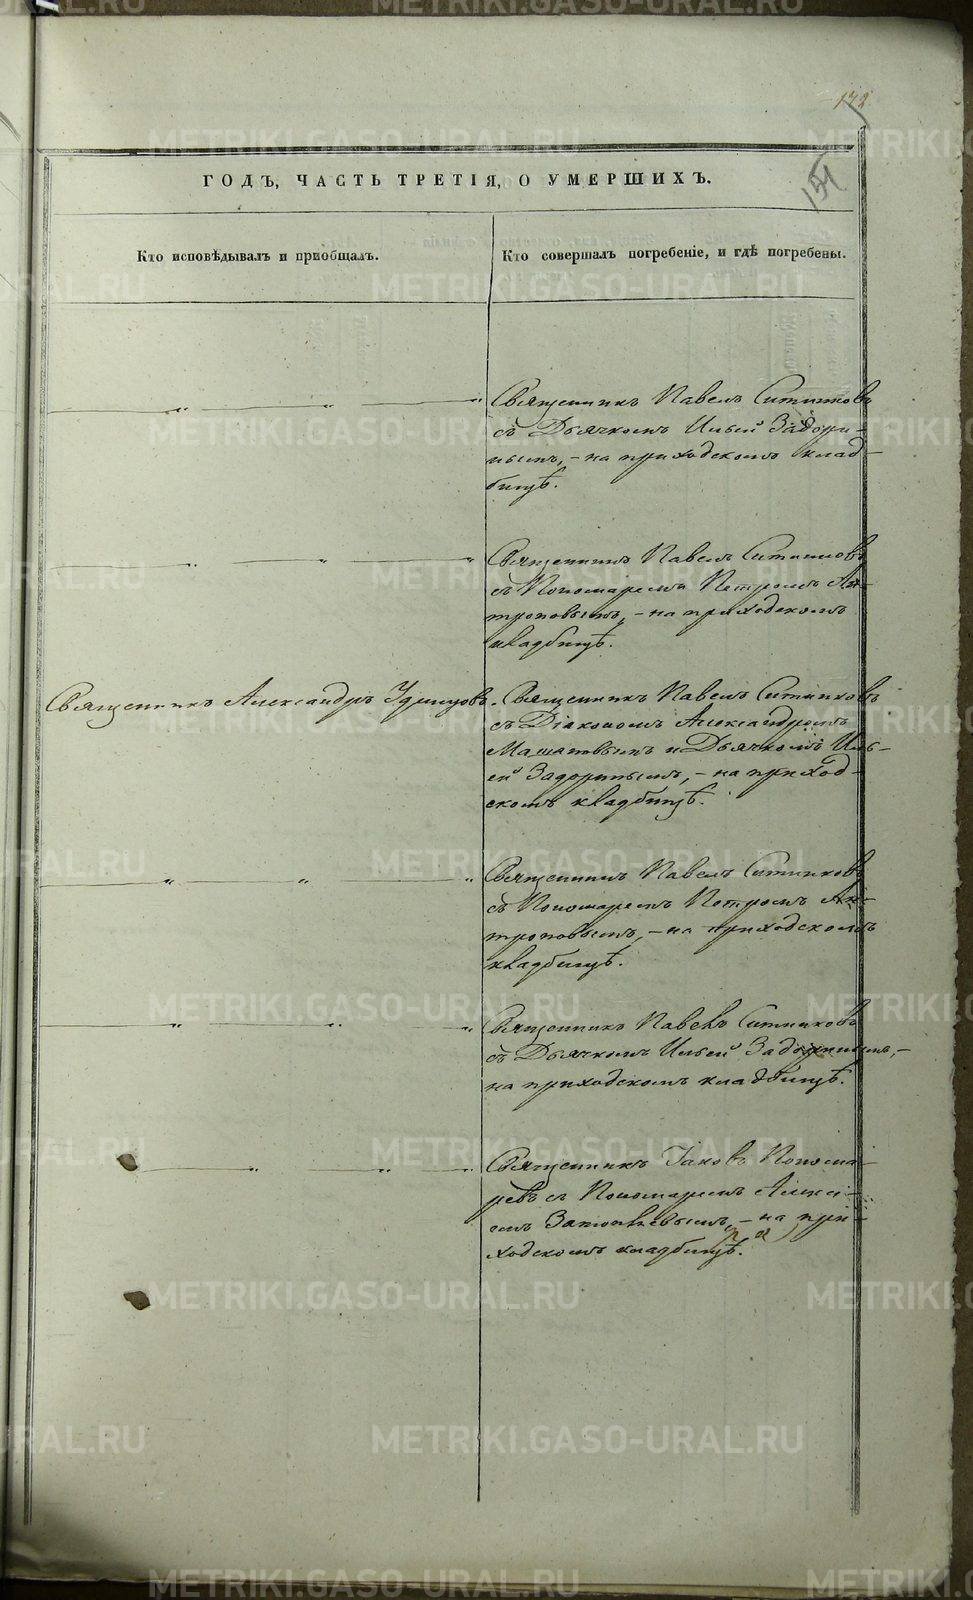 172
151
ГОДЪ, ЧАСТЬ ТРЕТІЯ, О УМЕРШИХЪ.
Кто исповѣдывалъ и приобщалъ.
Кто совершалъ погребеніе, и гдѣ погребены.
Священникъ Павелъ Ситниковъ
съ Дьячкомъ Ильей Задори-
нымъ, – на приходскомъ клад-
бищѣ.
Священникъ Павелъ Ситниковъ
съ Пономаремъ Петромъ Ан-
троповымъ, – на приходскомъ
кладбищѣ.
Священникъ Александръ Удинцовъ.
Священникъ Павелъ Ситниковъ
съ Діакономъ Александромъ
и Дьячкомъ Иль-
ей Задоринымъ, – на приход-
скомъ кладбищѣ.
Священникъ Павелъ Ситниковъ
съ Пономаремъ Петромъ Ан-
троповымъ, – на приходскомъ
кладбищѣ.
Священникъ Павелъ Ситниковъ
съ Дьячкомъ Ильей Задоринымъ, –
на приходскомъ кладбищѣ.
Священникъ Іаковъ Понома-
ревъ съ Пономаремъ Алексѣ-
емъ – на при-
ходскомъ кладбищѣ.
METRIKI.GASO-URAL.RU